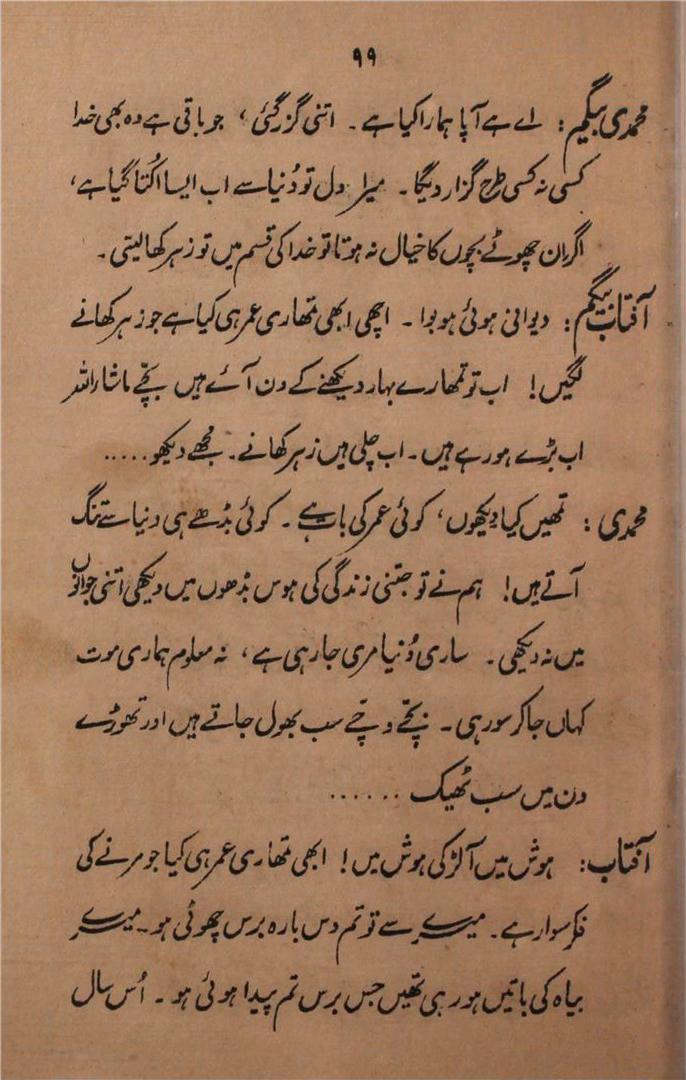 ۹۹
محمدی بیگم: اے ہے آپا ہمارا کیا ہے۔ اتنی گزر گئی، جو باقی ہے وہ بھی خدا
کسی نہ کسی طرح گزار دیگا۔ میرا دل تو دُنیا سے اب ایسا اُکتا گیا ہے،
اگر ان چھوٹے بچوں کا خیال نہ ہوتا تو خدا کی قسم میں تو زہر کھا لیتی۔
آفتاب بیگم: دیوانی ہوئی ہو بوا۔ اچھی ابھی تمھاری عمر ہی کیا ہے جو زہر کھانے
لگیں! اب تو تمھارے بہار دیکھنے کے دن آئے ہیں بچّے ماشاراللہ
اب بڑے ہو رہے ہیں۔ اب چلی ہیں زہر کھانے۔ مجھے دیکھو.....
محمدی: تمھیں کیا دیکھوں، کوئی عمر کی بات ہے۔ کوئی بڈھے ہی دنیا سے تنگ
آتے ہیں! ہم نے تو جتنی زندگی کی ہوس بڈھوں میں دیکھی اتنی جوانوں
میں نہ دیکھی۔ ساری دُنیا مری جا رہی ہے، نہ معلوم ہماری موت
کہاں جا کر سو رہی۔ بچّے وچّے سب بھول جاتے ہیں اور تھوڑے
دن میں سب ٹھیک ......
آفتاب: ہوش میں آ لڑکی ہوش میں! ابھی تمھاری عمر ہی کیا جو مرنے کی
فکر سوار ہے۔ میرے سے تو تم دس بارہ برس چھوٹی ہو۔ میرے
بیاہ کی باتیں ہو رہی تھیں جس برس تم پیدا ہوئی ہو۔ اُس سال